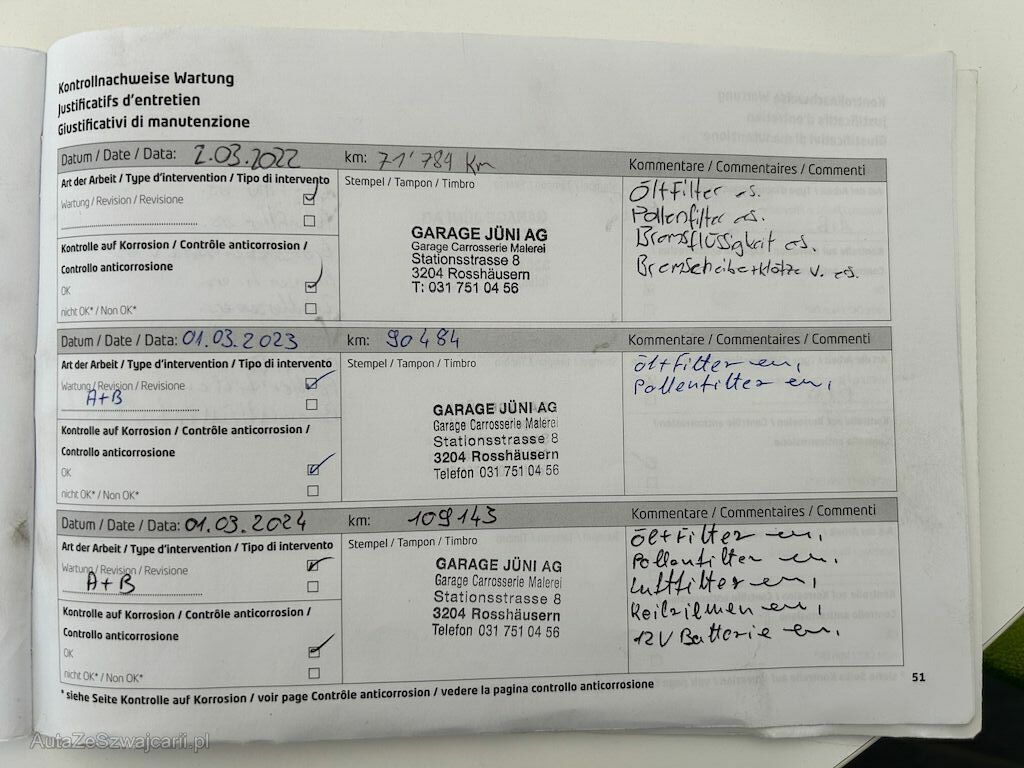 Kontrollnachweise Wartung
Justificatifs d'entretien
Giustificativi di manutenzione
Datum / Date / Data: 2.03.2022 km: 71'789 Km Kommentare / Commentaires / Commenti
Art der Arbeit / Type d'intervention / Tipo di intervento
Wartung / Revision / Revisione
Kontrolle auf Korrosion / Contrôle anticorrosion /
Controllo anticorrosione
OK
nicht OK* / Non OK*
Stempel / Tampon / Timbro
GARAGE JÜNI AG
Garage Carrosserie Malerei
Stationsstrasse 8
3204 Rosshäusern
T: 031 751 04 56
Öl+Filter es.
Pollenfilter es.
Bremsflüssigkeit es.
Bremscheibe+Klötze v. es.
Datum / Date / Data: 01.03.2023 km: 90484 Kommentare / Commentaires / Commenti
Art der Arbeit / Type d'intervention / Tipo di intervento
Wartung / Revision / Revisione
A+B
Kontrolle auf Korrosion / Contrôle anticorrosion /
Controllo anticorrosione
OK
nicht OK* / Non OK*
Stempel / Tampon / Timbro
GARAGE JÜNI AG
Garage Carrosserie Malerei
Stationsstrasse 8
3204 Rosshäusern
Telefon 031 751 04 56
Öl+Filter en,
Pollenfilter en,
Datum / Date / Data: 01.03.2024 km: 109143 Kommentare / Commentaires / Commenti
Art der Arbeit / Type d'intervention / Tipo di intervento
Wartung / Revision / Revisione
A+B
Kontrolle auf Korrosion / Contrôle anticorrosion /
Controllo anticorrosione
OK
nicht OK* / Non OK*
Stempel / Tampon / Timbro
GARAGE JÜNI AG
Garage Carrosserie Malerei
Stationsstrasse 8
3204 Rosshäusern
Telefon 031 751 04 56
Öl+Filter en,
Pollenfilter en,
Luftfilter en,
Keilriemen en,
12V Batterie en,
* siehe Seite Kontrolle auf Korrosion / voir page Contrôle anticorrosion / vedere la pagina controllo anticorrosione
51
AutaZeSzwajcarii.pl